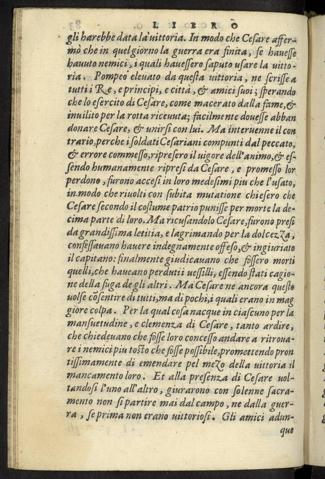 LIBRO
gli harebbe data la uittoria. In modo che Cesare affer-
mò che in quel giorno la guerra era finita, se hauesse
hauuto nemici, i quali hauessero saputo usare la uitto-
ria. Pompeo eleuato da questa uittoria, ne scrisse a
tutti i Re, e principi, e città, & amici suoi; sperando
che lo esercito di Cesare, come macerato dalla fame, &
inuilito per la rotta riceuuta; facilmente douesse abban
donare Cesare, & unirsi con lui. Ma interuenne il con
trario, perche i soldati Cesariani compunti dal peccato,
& errore commesso, ripresero il uigore dell'animo, & es-
sendo humanamente ripresi da Cesare, e promesso lor
perdono, furono accesi in loro medesimi piu che l'usato,
in modo che riuolti con subita mutatione chiesero che
Cesare secondo il costume patrio punisse per morte la de-
cima parte di loro. Ma ricusandolo Cesare, furono presi
da grandissima letitia, e lagrimando per la dolcezza,
confessauano hauere indegnamente offeso, & ingiuriato
il capitano: finalmente giudicauano che fossero morti
quelli, che haueano perduti i uessilli, essendo stati cagio-
ne della fuga de gli altri. Ma Cesare ne ancora questo
uolse cōsentire di tutti, ma di pochi, i quali erano in mag
giore colpa. Per la qual cosa nacque in ciascuno per la
mansuetudine, e clemenza di Cesare, tanto ardire,
che chiedeuano che fosse loro concesso andare a ritroua-
re i nemici piu tosto che fosse possibile, promettendo pron
tissimamente di emendar pel mezo della uittoria il
mancamento loro. Et alla presenza di Cesare uol-
tandosi l'uno all'altro, giurarono con solenne sacra-
mento non si partire mai dal campo, ne dalla guer-
ra, se prima non erano uittoriosi. Gli amici adun-
que